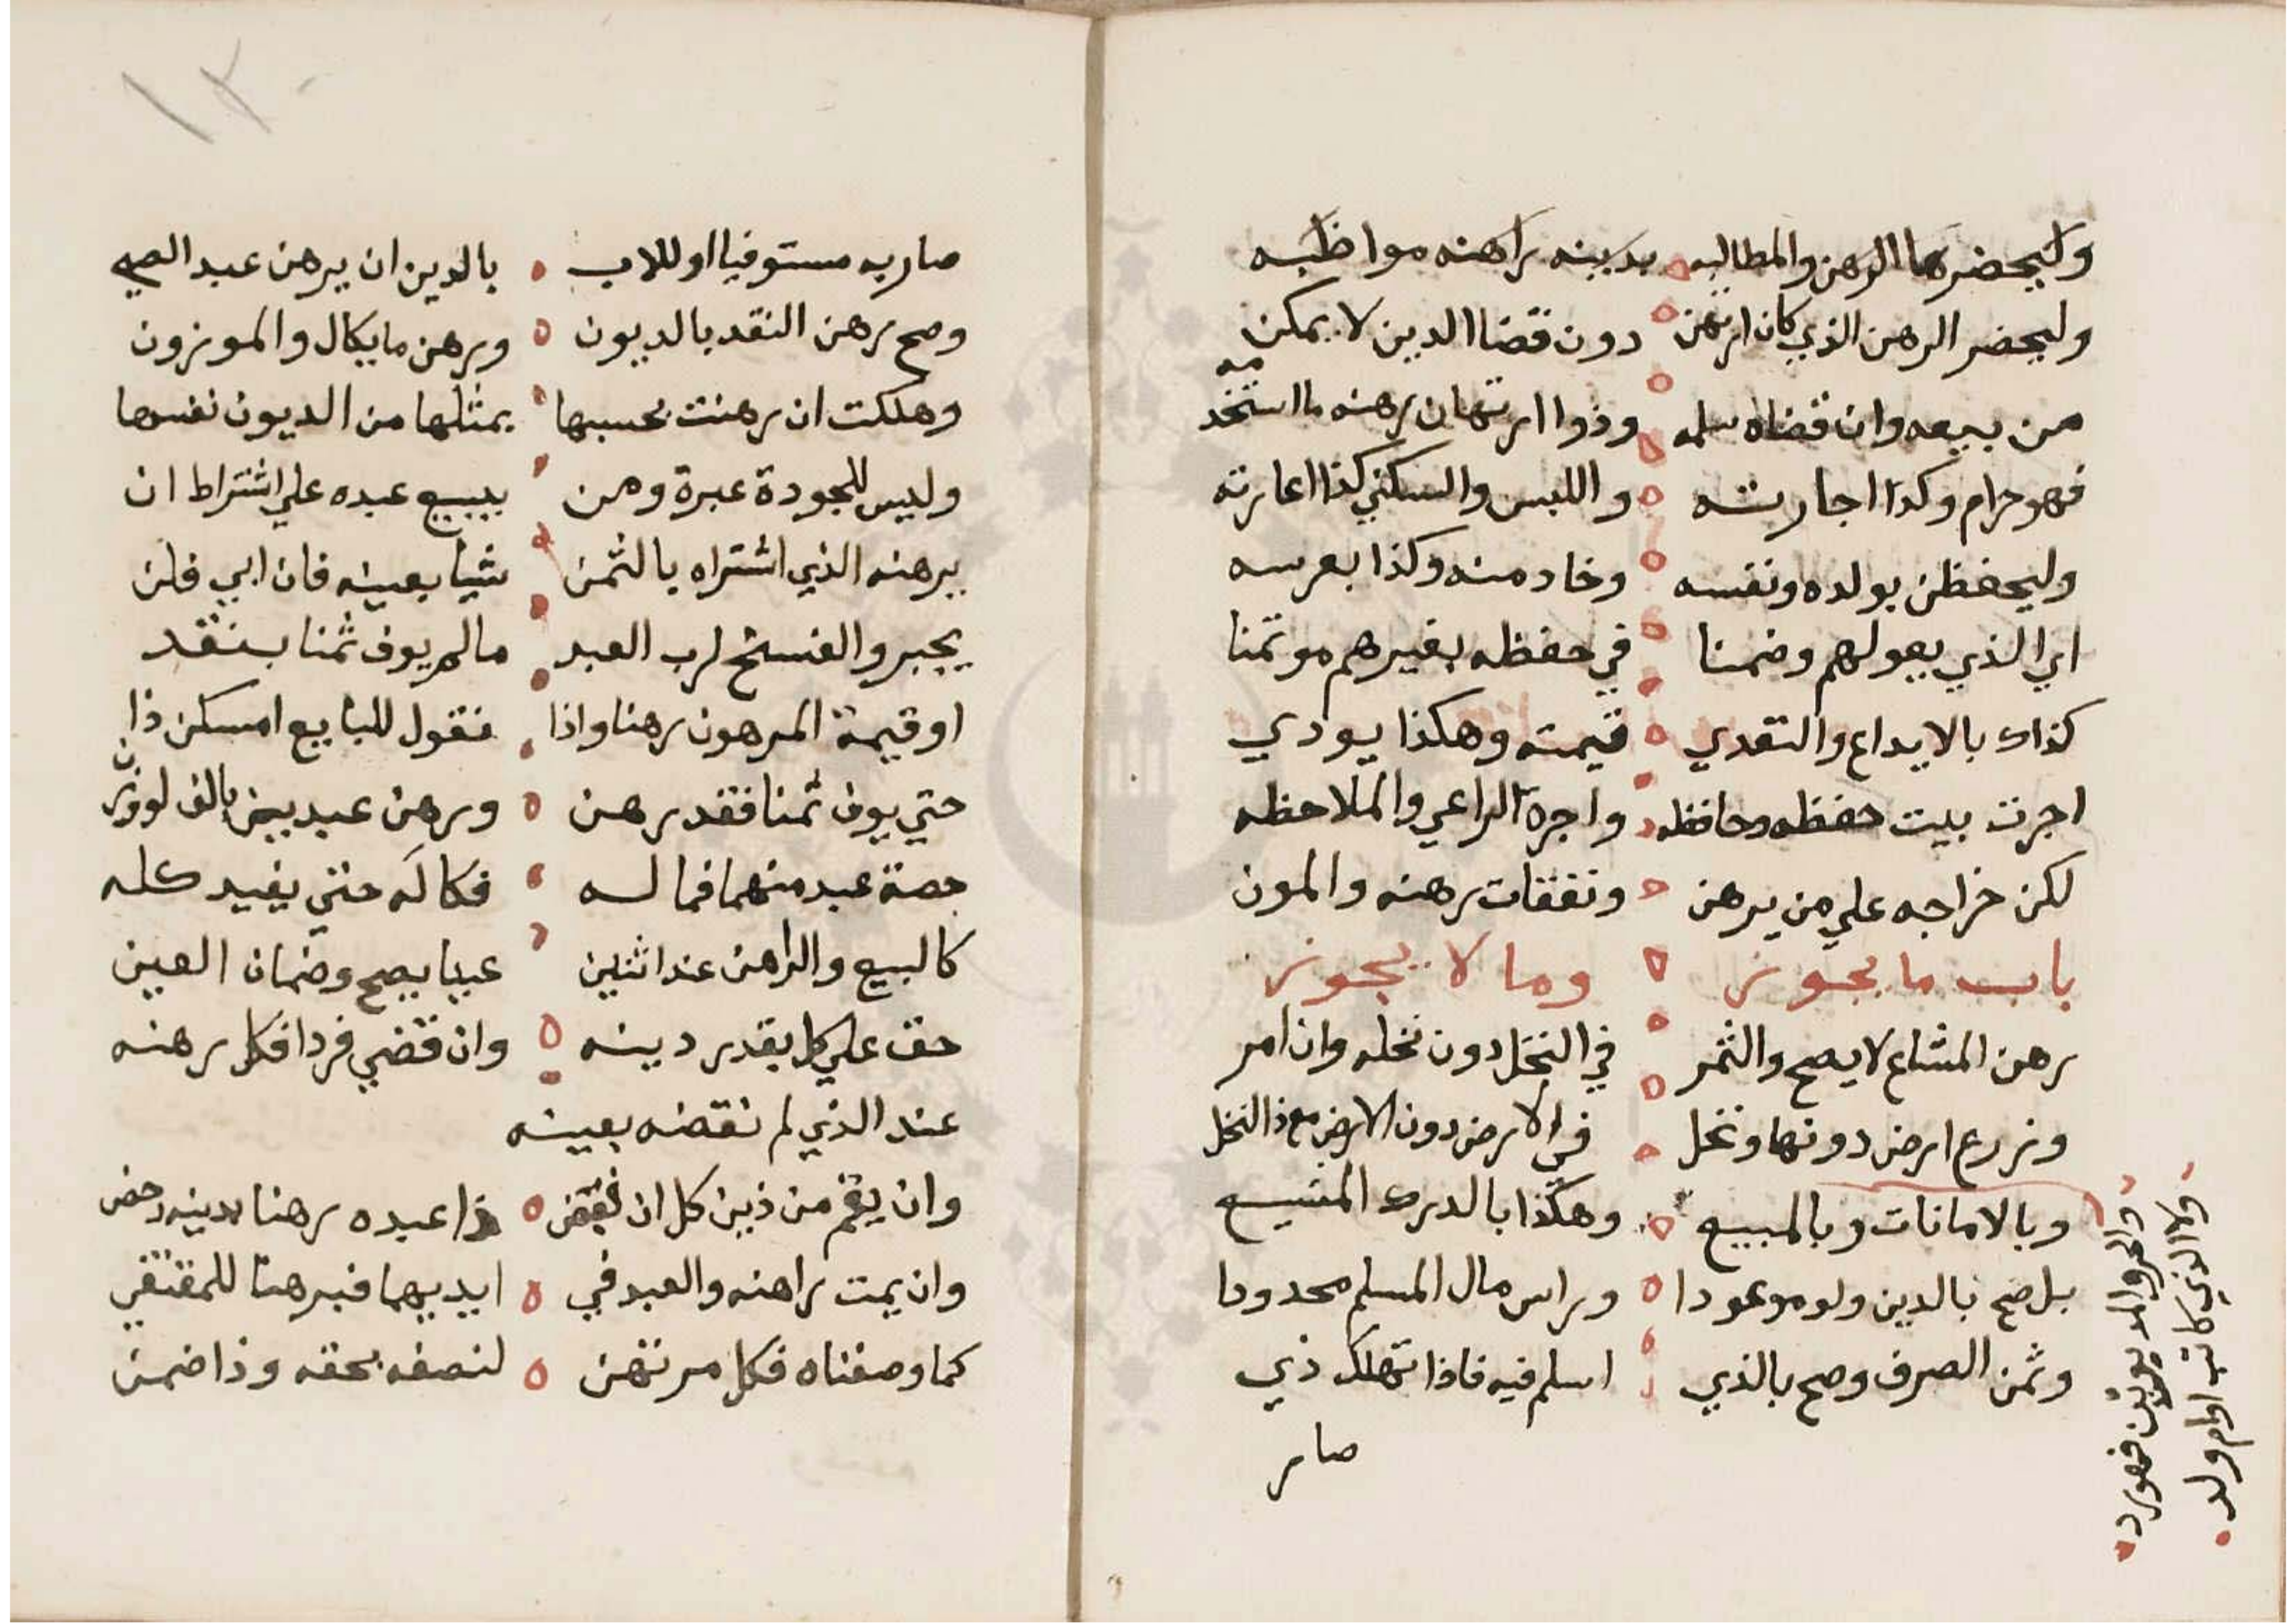 وليحضرها الرهن والمطالبه بدينه راهنه مواظبه
وليحضر الرهن الذي كان ارتهن دون قضا الدين لا يمكن
من بيعه وان قضاه سلمه وذوا ارتهان رهنه ما استخدمه
فهو حرام وكذا اجارته واللبس والسكني كذا اعارته
وليحفظن بولده ونفسه وخادمنه وكذا بعرسه
اي الذي يعولهم وضمنا في حفظه بغيرهم موتمنا
كذاك بالايداع والتعدي قيمته وهكذا يودي
اجرت بيت حفظه وحافظه واجرة الراعي والملاحظه
لكن خراجه علي من يرهن ونفقات رهنه والمون
باب ما يجوز وما لا يجوز
رهن المشاع لا يصح والثمر في النخل دون نخله وان امر
وزرع ارض دونها ونخل في الارض دون الارض مع ذا النخل
وبالامانات وبالمبيع وهكذا بالدرك المنيع
بل صح بالدين ولو موعودا وراس مال المسلم محدودا
وثمن الصرف وصح بالذي اسلم فيه فاذا تهلك ذي
صار
والحر والمد
ولا الذي كاتب او ام ولد
١٣٠
صار به مستوفيا او للاب بالدين ان يرهن عبد الصبي
وصح رهن النقد بالديون ورهن ما يكال والموزون
وهلكت ان رهنت بحسبها بمثلها من الديون نفسها
وليس للجودة عبرة ومن يبيع عبده علي اشتراط ان
يرهنه الذي اشتراه بالثمن شيا بعينه فان ابي فلن
يجبر والفسخ لرب العبد مالم يوف ثمنا بنقد
او قيمة المرهون رهنا واذا فنقول للبايع امسكن ذا
حتي يوف ثمنا فقد رهن ورهن عبدين بالف لو وزن
حصة عبد منهما فما له فكاكه حتي يفيد كله
كالبيع والراهن عند اثنين عينا يصح وضمان العين
حق علي كل بقدر دينه وان قضي فردا فكل رهنه
عند الذي لم نقضه بعينه
وان يقم من ذين كل ان ذا عبده رهنا بدينه
وان يمت راهنه والعبد في ايديهما فبرهنا للمقتفي
كما وصفناه فكل مرتهن لنصفه بحقه وذا ضمن